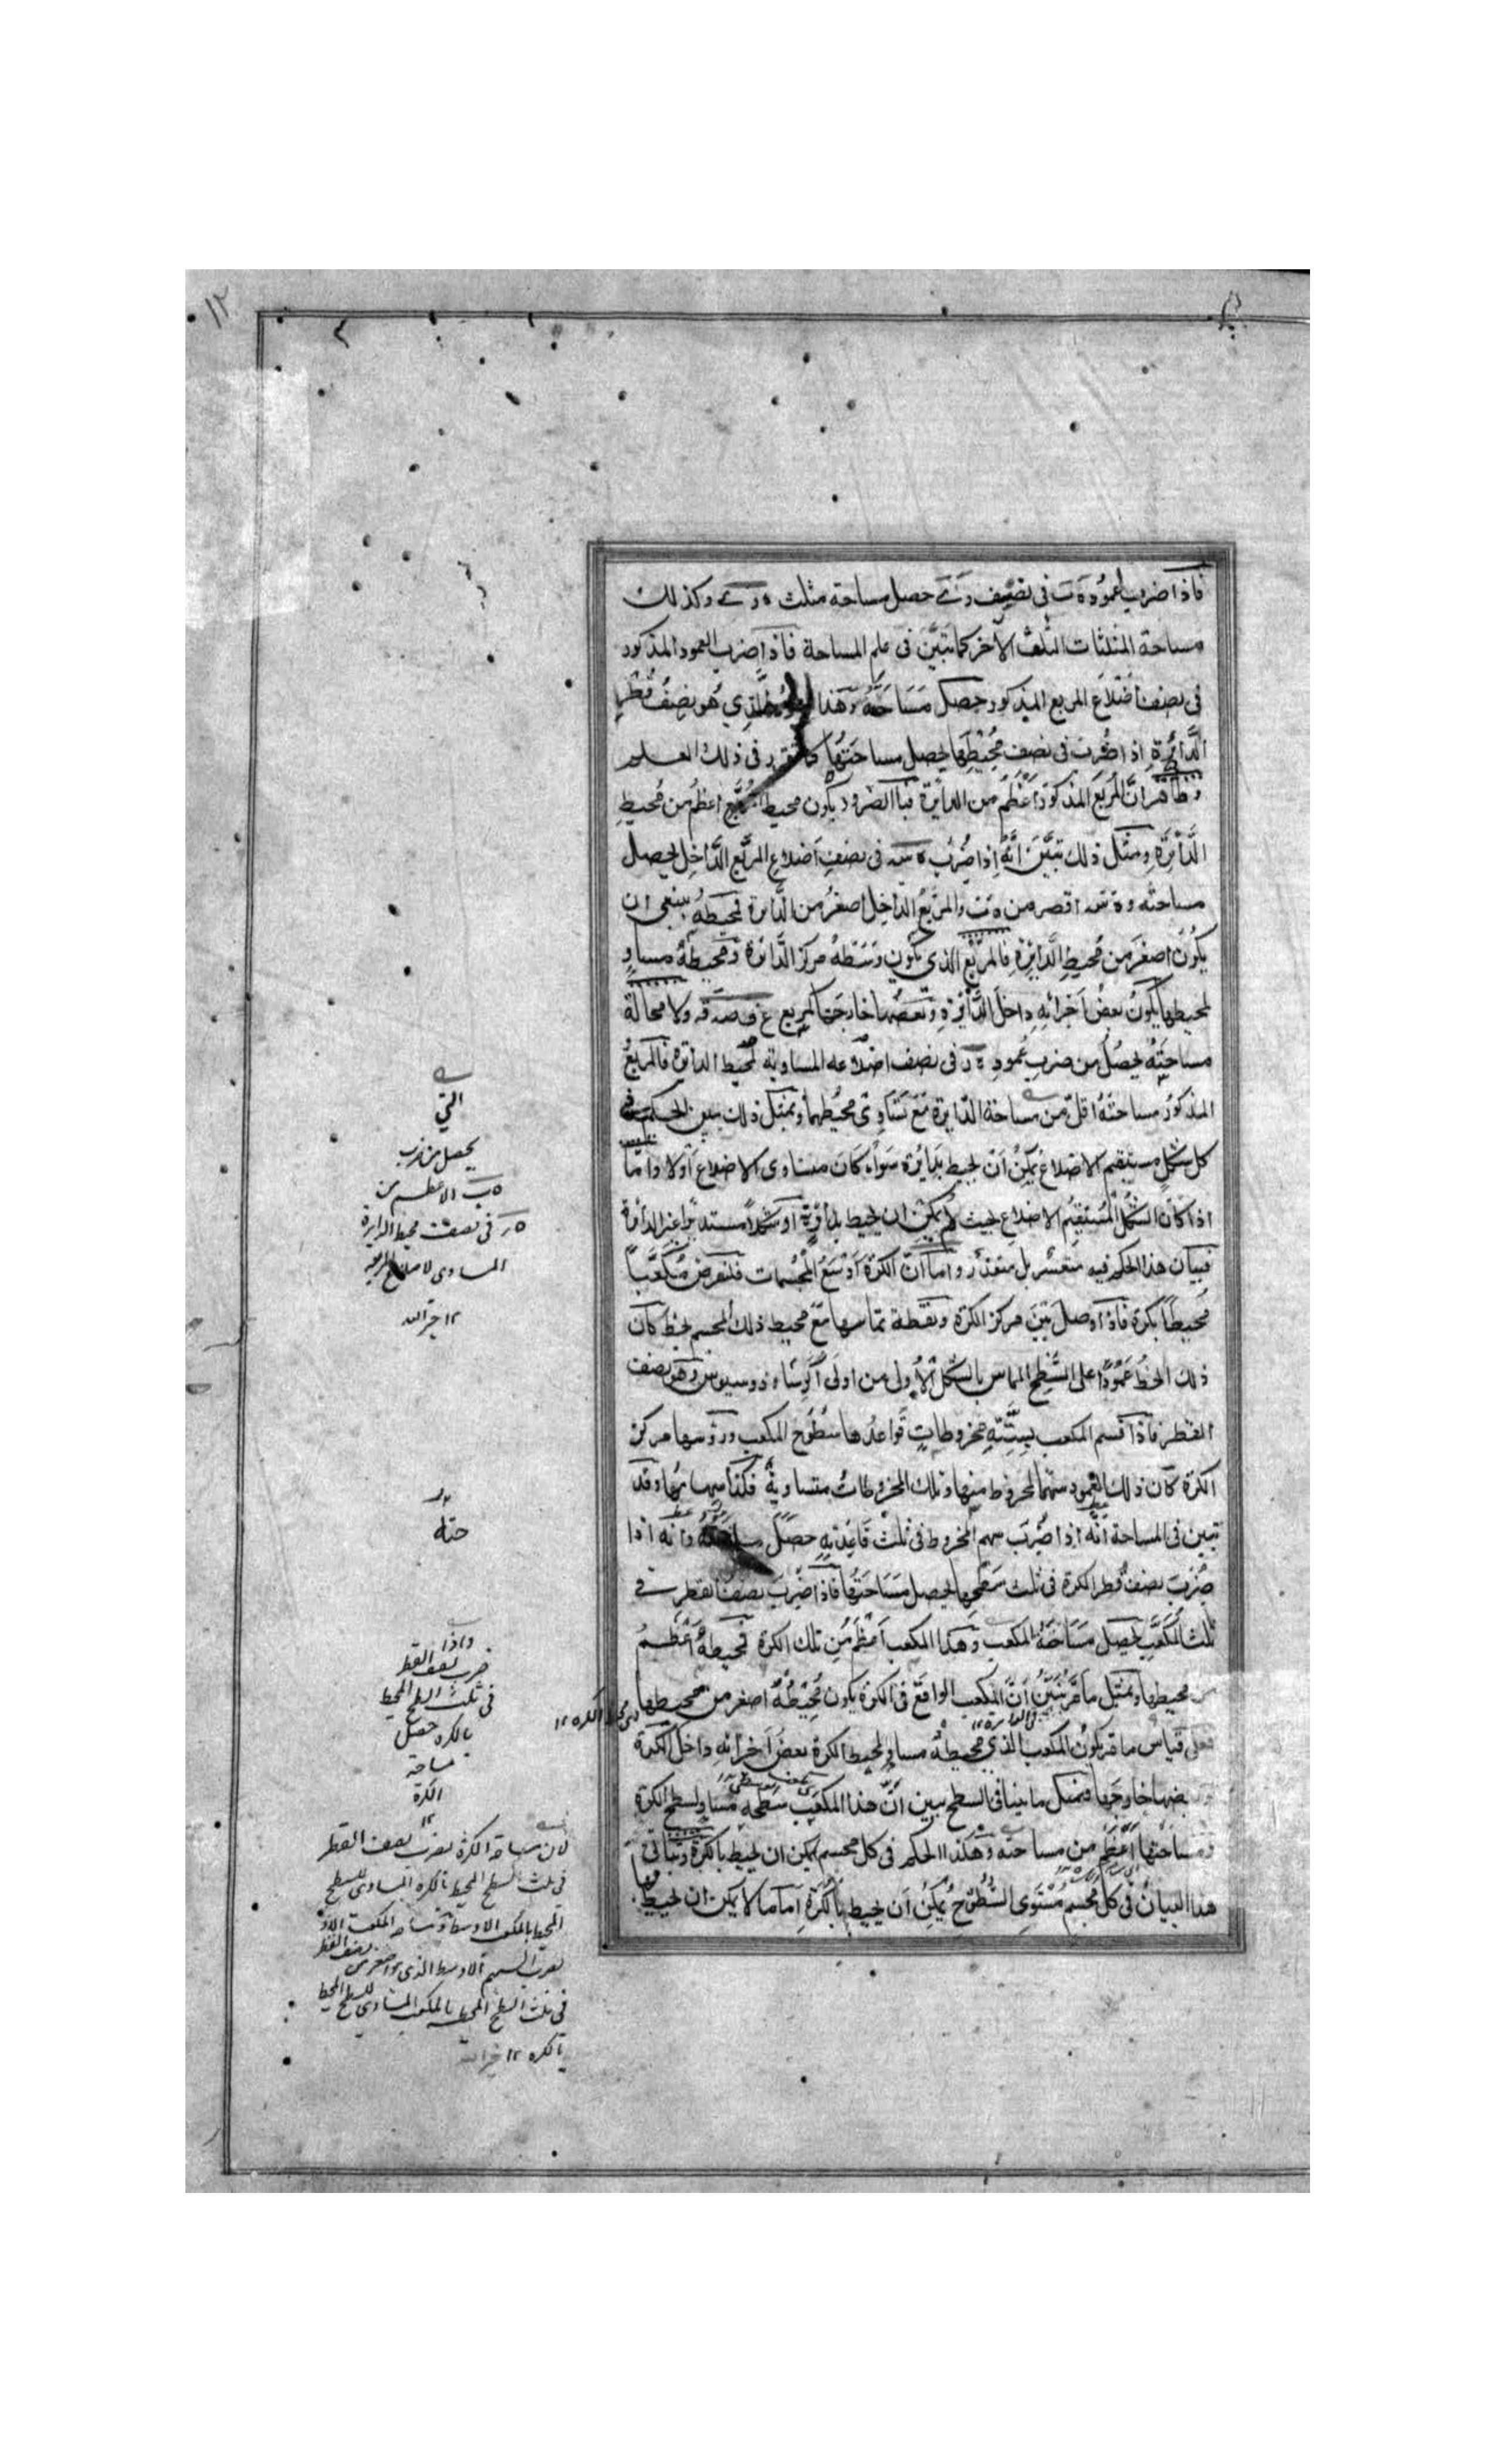 فاذا ضرب عمود ه ت فى نصف ر ے حصل مساحة مثلث ه ر ے وكذلك
مساحة المثلثات الثلث الاخر كما تبين فى علم المساحة فاذا ضرب العمود المذكور
فى نصف اضلاع المربع المذكور حصل مساحته وهذا الذي هو نصف قطر
الدائرة اذا ضرب فى نصف محيطها يحصل مساحتها كما تقرر فى ذلك العلم
وظاهر ان المربع المذكور اعظم من الدائرة فبالضرورة يكون محيط المربع اعظم من محيط
الدائرة ومثل ذلك تبين انه اذا ضرب ه سه فى نصف اضلاع المربع الداخل يحصل
مساحته و ه سه اقصر من ه ت والمربع الداخل اصغر من الدائرة فمحيطه ينبغى ان
يكون اصغر من محيط الدايرة فالمربع الذي يكون وسطه مركز الدائرة ومحيطه مساو
لمحيطها يكون بعض اجزائه داخل الدائرة وبعضها خارجها كالمربع ولا محالة
مساحته يحصل من ضرب عمود ه ر فى نصف اضلاعه المساوية لمحيط الدائرة فالمربع
المذكور مساحته اقل من مساحة الدايرة مع تساوى محيطهما وبمثل ذلك تبين الحكم فى
كل شكل مستقيم الاضلاع يمكن ان يحيط بدائرة سواء كان متساوى الاضلاع اولا واما
اذا كان الشكل المستقيم الاضلاع بحيث لم يمكن ان يحيط بدائرة او شكلا مستديرا غير الدائرة
فبيان هذا الحكم فيه متعسر بل متعذر واما ان الكرة اوسع المجسمات فلنفرض مكعبا
محيطا بكرة فاذا وصل بين مركز الكرة ونقطة تماسها مع محيط ذلك المجسم بخط كان
ذلك الخط عمودا على السطح المماس بالشكل الاولى من اولى اكر ثاوذوسيوس وهو نصف
القطر فاذا قسم المكعب بستة مخروطات قواعدها سطوح المكعب ورؤسها مركز
الكرة كان ذلك العمود سهما لمخروط منها وتلك المخروطات متساوية فكذا سهامها وقد
تبين فى المساحة انه اذا ضرب سهم المخروط فى ثلث قاعدته حصل مساحته وانه اذا
ضرب نصف قطر الكرة فى ثلث سطحها يحصل مساحتها فاذا ضرب نصف القطر فى
ثلث المكعب يحصل مساحة المكعب وهذا المكعب اعظم من تلك الكرة فمحيطه اعظم
من محيطها وبمثل ما مر تبين ان المكعب الواقع فى الكرة يكون محيطه اصغر من محيطها
فعلى قياس ما مر يكون المكعب الذي محيطه مساو لمحيط الكرة بعض اجزائه داخل الكرة
وبعضها خارجها فبمثل ما بينا فى السطح تبين ان هذا المكعب سطحه مساو لسطح الكرة
ومساحتها اعظم من مساحته وهكذا الحكم فى كل مجسم يمكن ان يحيط بالكرة وتباتى
هذا البيان فى كل مجسم مستوى السطوح يمكن ان يحيط بالكرة اما ما لا يمكن ان يحيط
التي
يحصل من ضرب
ه ب الاعظم من
ه ر فى نصف محيط الدايرة
المساوى لاضلاع المربع
١٢ خير الله
حته
واذا
ضرب نصف القطر
فى ثلث السطح المحيط
بالكره حصل
مساحة
الكرة
١٢
لان مساحة الكرة بضرب نصف القطر
فى ثلث السطح المحيط بالكره المساوى للسطح
المحيط بالمكعب الاوسط ومساحة المكعب
بضرب السهم الاوسط الذى هو اصغر من نصف القطر
فى ثلث السطح المحيط بالمكعب المساوى للسطح المحيط
بالكره ١٢ خير الله
١٢